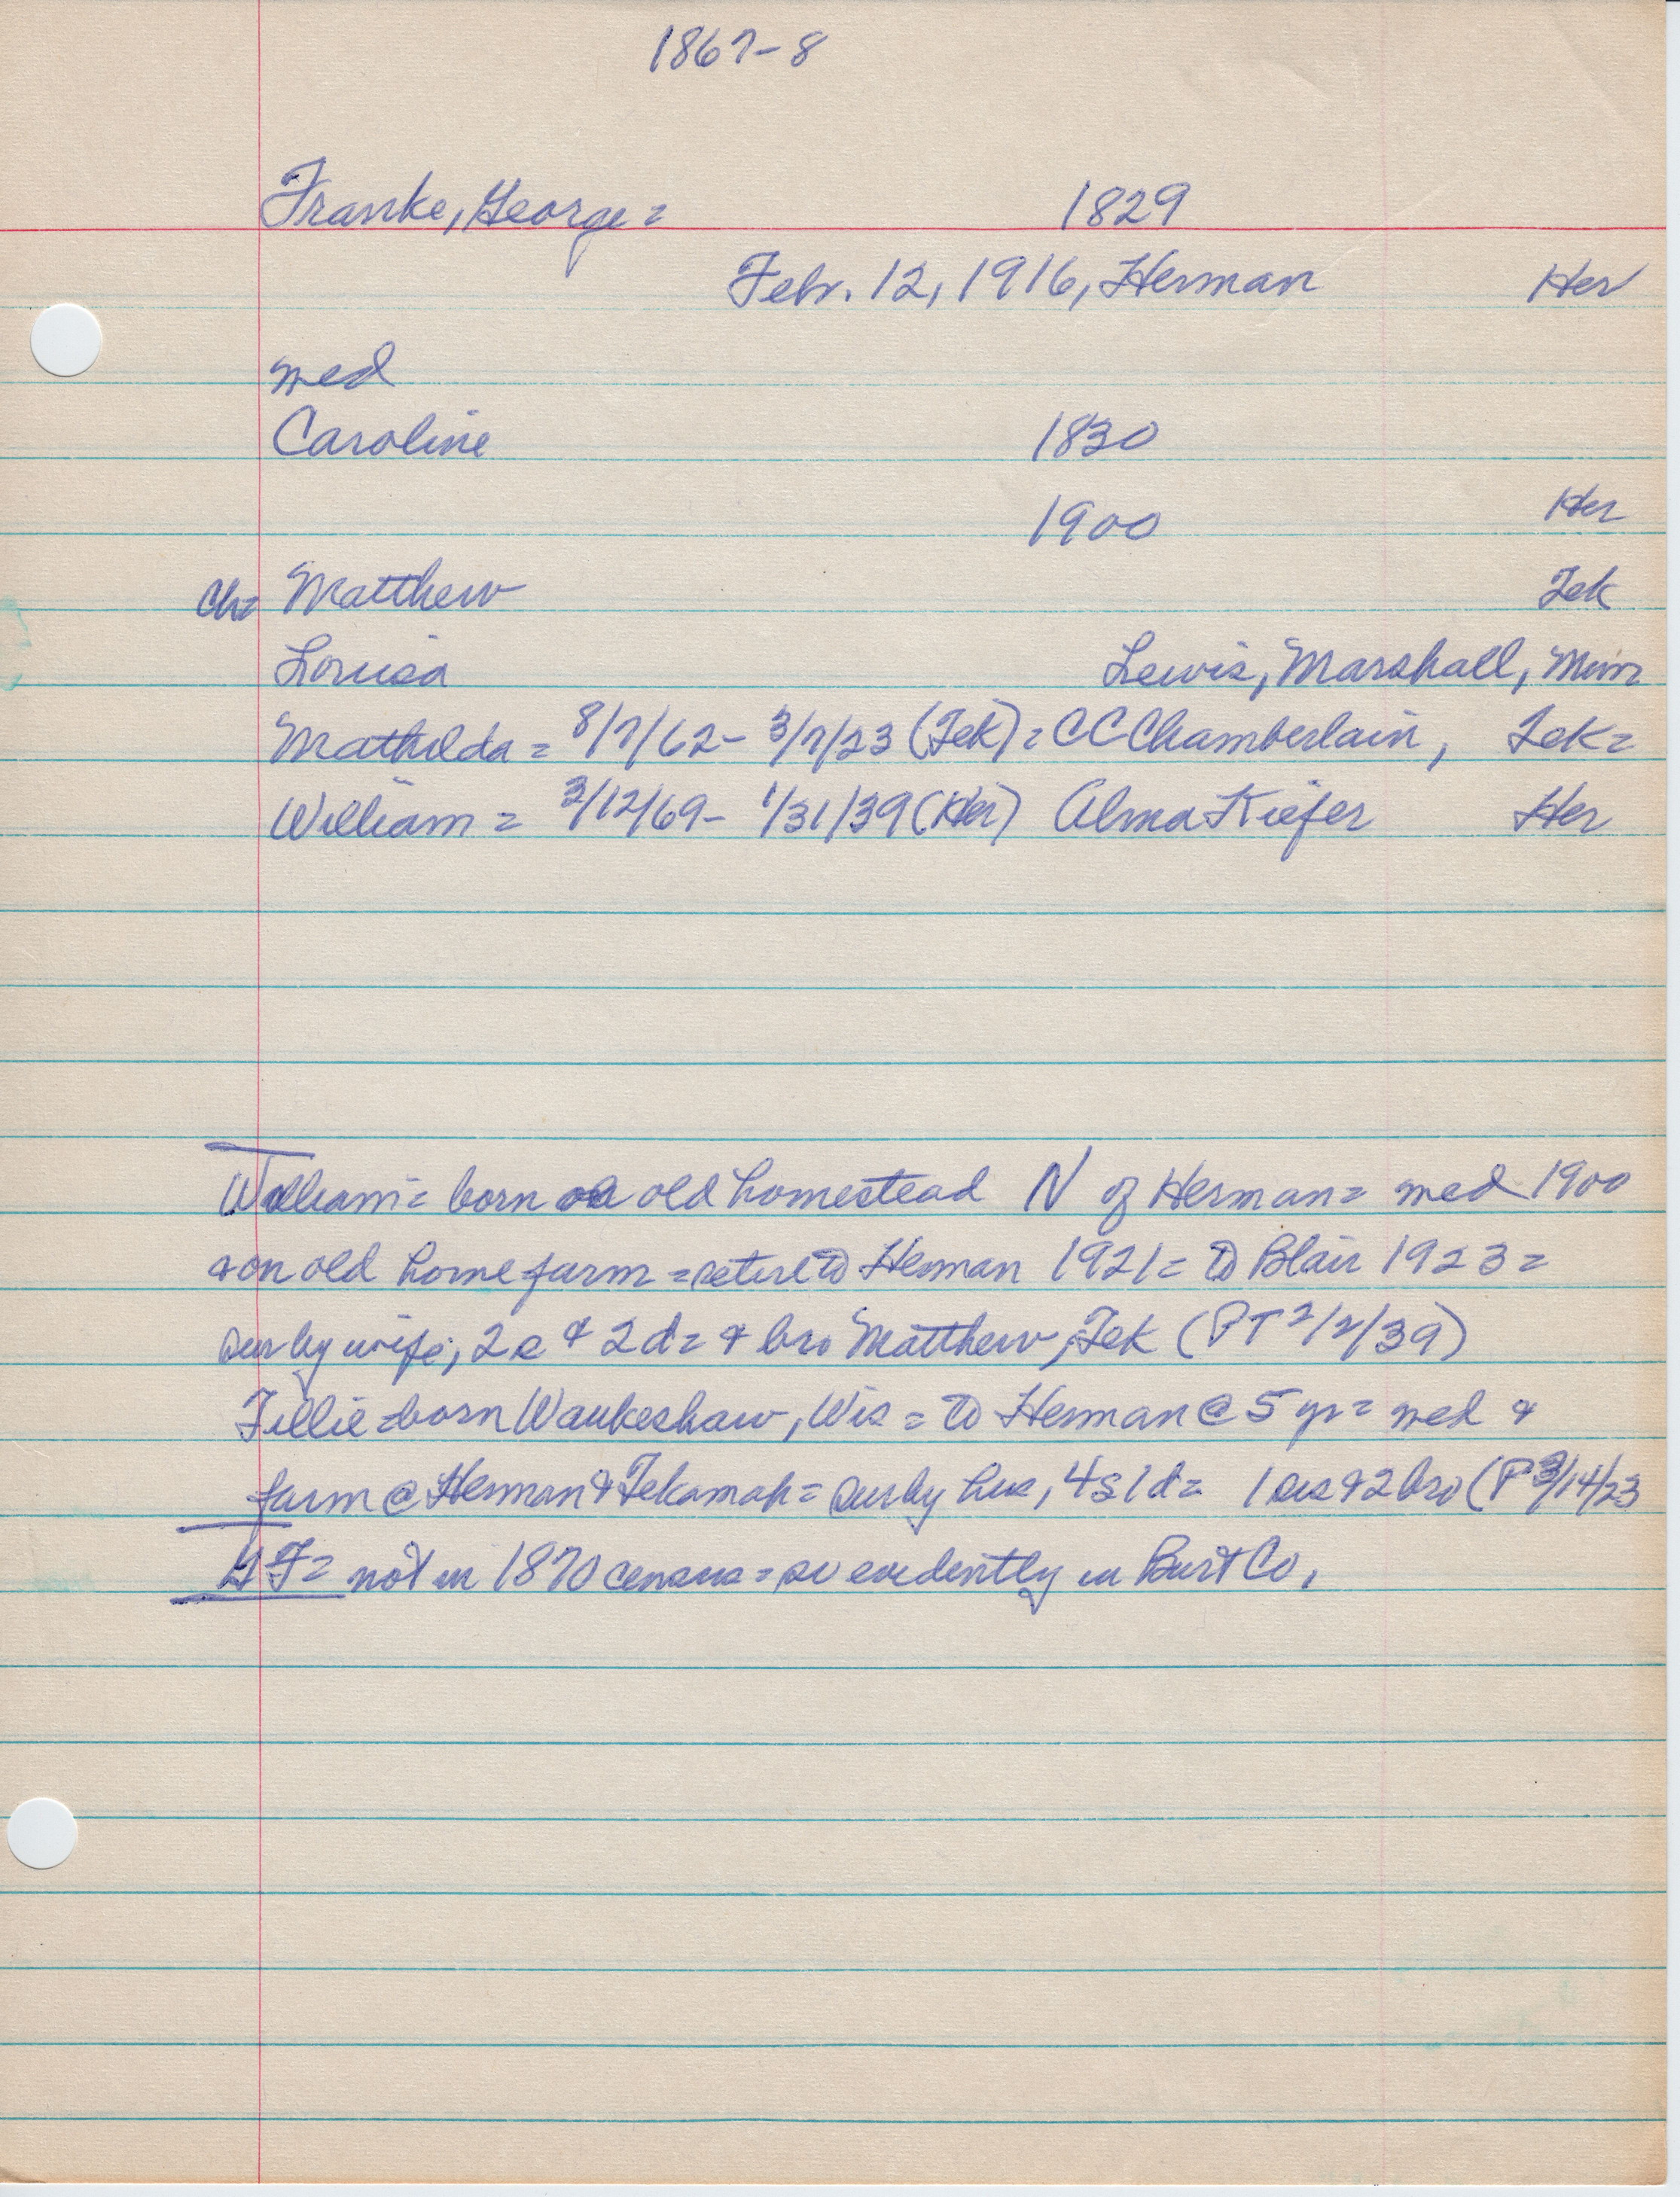 1867-8
Franke, George = 1829
Febr. 12, 1916, Herman Her
med
Caroline 1830
1900 Her
Ch= Matthew Tek
Louisa Lewis, Marshall, Minn
Mathilda = 8/7/62 - 3/7/23 (Tek) = C C Chamberlain, Tek =
William = 3/12/69 - 1/31/39 (Her) Alma Kiefer Her
William = born on old homestead N of Herman = med 1900
& on old home farm = retire to Herman 1921 = to Blair 1923 =
sur by wife, 2 s & 2 d = & bro Matthew, Tek (PT 2/2/39)
Tillie = born Waukeshaw, Wis = to Herman @ 5 yr = med &
farm @ Herman & Tekamah = sur by hus, 4 s 1 d = 1 sis & 2 bro (P 3/14/23
GF = not in 1870 census = so evidently in Burt Co.